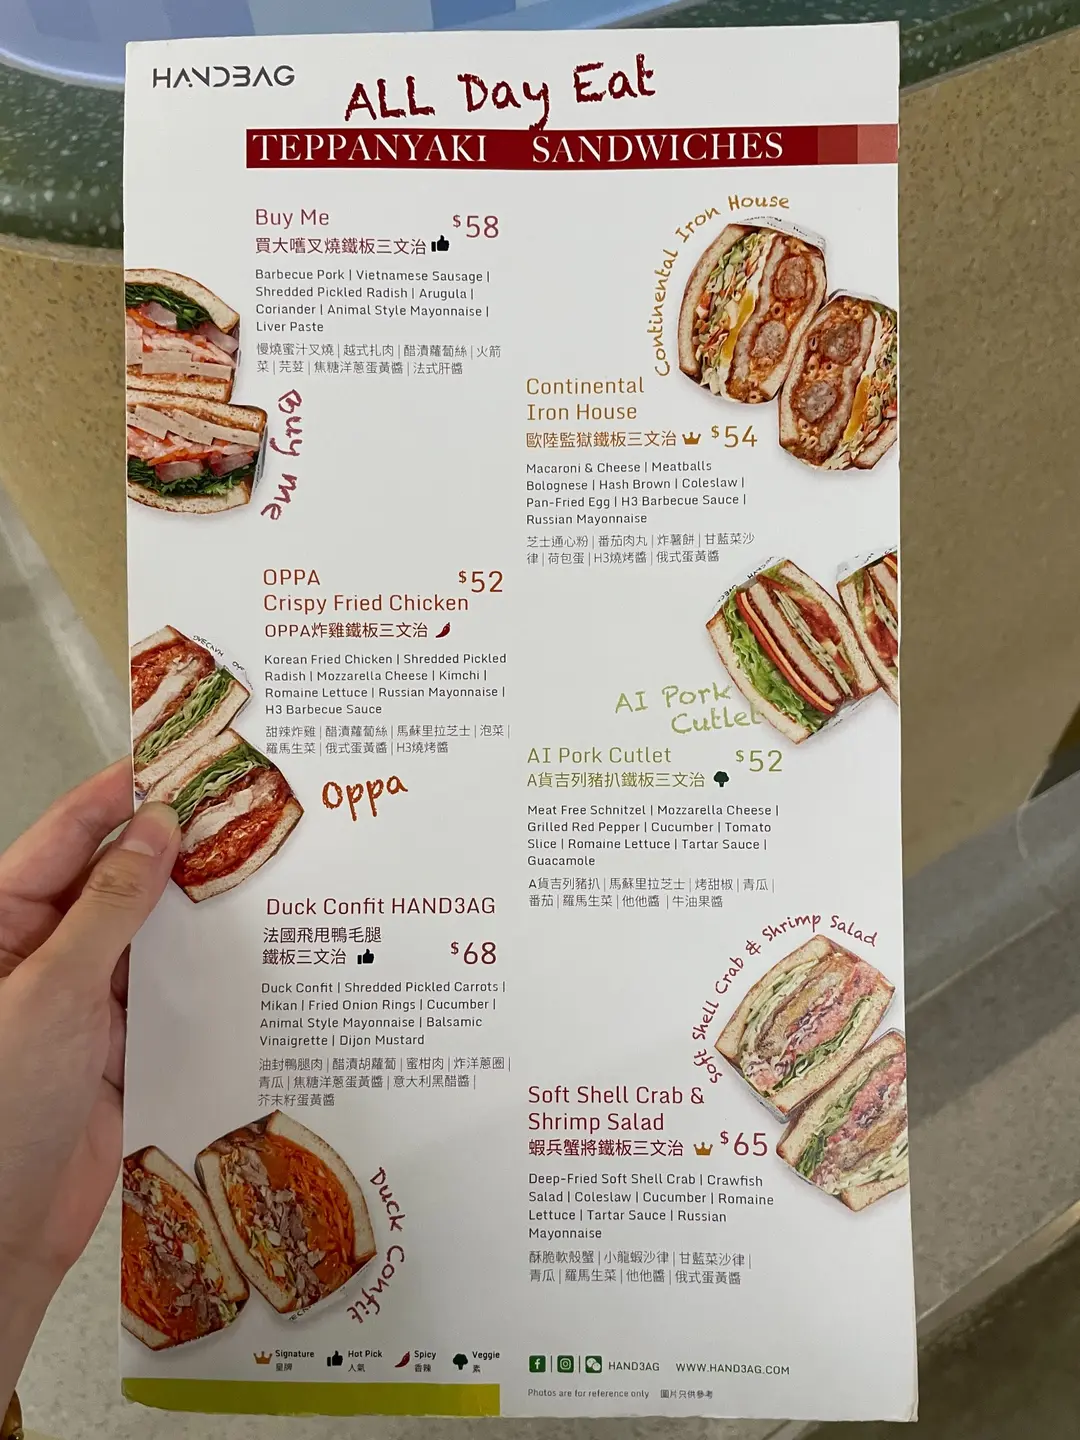 HAND3AG
ALL Day Eat
TEPPANYAKI SANDWICHES
Buy Me
$58
買大嚿叉燒鐵板三文治
Barbecue Pork | Vietnamese Sausage |
Shredded Pickled Radish | Arugula |
Coriander | Animal Style Mayonnaise |
Liver Paste
慢燒蜜汁叉燒 | 越式扎肉 | 醋漬蘿蔔絲 | 火箭
菜 | 芫荽 | 焦糖洋蔥蛋黃醬 | 法式肝醬
Buy me
OPPA
$52
Crispy Fried Chicken
OPPA炸雞鐵板三文治
Korean Fried Chicken | Shredded Pickled
Radish | Mozzarella Cheese | Kimchi |
Romaine Lettuce | Russian Mayonnaise |
H3 Barbecue Sauce
甜辣炸雞 | 醋漬蘿蔔絲 | 馬蘇里拉芝士 | 泡菜 |
羅馬生菜 | 俄式蛋黃醬 | H3燒烤醬
Oppa
Duck Confit HAND3AG
法國飛甩鴨毛腿
鐵板三文治
$68
Duck Confit | Shredded Pickled Carrots |
Mikan | Fried Onion Rings | Cucumber |
Animal Style Mayonnaise | Balsamic
Vinaigrette | Dijon Mustard
油封鴨腿肉 | 醋漬胡蘿蔔 | 蜜柑肉 | 炸洋蔥圈 |
青瓜 | 焦糖洋蔥蛋黃醬 | 意大利黑醋醬 |
芥末籽蛋黃醬
Duck Confit
Continental Iron House
Continental
Iron House
歐陸監獄鐵板三文治
$54
Macaroni & Cheese | Meatballs
Bolognese | Hash Brown | Coleslaw |
Pan-Fried Egg | H3 Barbecue Sauce |
Russian Mayonnaise
芝士通心粉 | 番茄肉丸 | 炸薯餅 | 甘藍菜沙
律 | 荷包蛋 | H3燒烤醬 | 俄式蛋黃醬
AI Pork
Cutlet
AI Pork Cutlet
$52
A貨吉列豬扒鐵板三文治
Meat Free Schnitzel | Mozzarella Cheese |
Grilled Red Pepper | Cucumber | Tomato
Slice | Romaine Lettuce | Tartar Sauce |
Guacamole
A貨吉列豬扒 | 馬蘇里拉芝士 | 烤甜椒 | 青瓜 |
番茄 | 羅馬生菜 | 他他醬 | 牛油果醬
Soft Shell Crab & Shrimp Salad
Soft Shell Crab &
Shrimp Salad
蝦兵蟹將鐵板三文治
$65
Deep-Fried Soft Shell Crab | Crawfish
Salad | Coleslaw | Cucumber | Romaine
Lettuce | Tartar Sauce | Russian
Mayonnaise
酥脆軟殼蟹 | 小龍蝦沙律 | 甘藍菜沙律 |
青瓜 | 羅馬生菜 | 他他醬 | 俄式蛋黃醬
Signature
皇牌
Hot Pick
人氣
Spicy
香辣
Veggie
素
HAND3AG WWW.HAND3AG.COM
Photos are for reference only 圖片只供參考